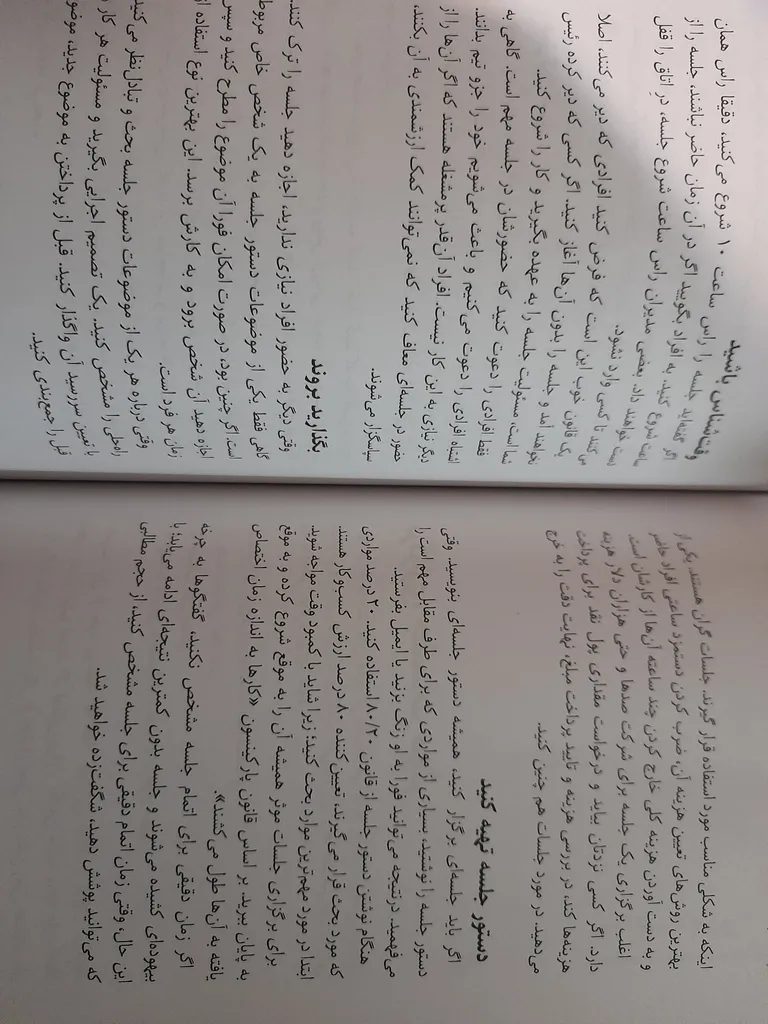 اینکه به شکلی مناسب مورد استفاده قرار گیرند. جلسات گران هستند. یکی از
بهترین روش‌های تعیین هزینه آن، ضرب کردن دستمزد ساعتی افراد حاضر
و به دست آوردن هزینه کلی خارج کردن چند ساعته آن‌ها از کارشان است.
اغلب برگزاری یک جلسه برای شرکت صدها و حتی هزاران دلار هزینه
دارد. اگر کسی نزدتان بیاید و درخواست مقداری پول نقد برای پرداخت
هزینه‌ها کند، در بررسی هزینه و تایید پرداخت مبلغ، نهایت دقت را به خرج
می‌دهید. در مورد جلسات هم چنین کنید.
دستور جلسه تهیه کنید
اگر باید جلسه‌ای برگزار کنید، همیشه دستور جلسه‌ای بنویسید. وقتی
دستور جلسه را نوشتید، بسیاری از مواردی که برای طرف مقابل مهم است را
می‌فهمید. درنتیجه می‌توانید فورا به او زنگ بزنید یا ایمیل بفرستید.
هنگام نوشتن دستور جلسه از قانون ۸۰/۲۰ استفاده کنید. ۲۰ درصد مواردی
که مورد بحث قرار می‌گیرند، تعیین کننده ۸۰ درصد ارزش کسب‌وکار هستند.
ابتدا در مورد مهم‌ترین موارد بحث کنید؛ زیرا شاید با کمبود وقت مواجه شوید.
برای برگزاری جلسات موثر همیشه آن را به موقع شروع کرده و به موقع
به پایان ببرید. بر اساس قانون پارکینسون «کارها به اندازه زمان اختصاص
یافته به آن‌ها طول می‌کشند».
اگر زمان دقیقی برای اتمام جلسه مشخص نکنید، گفتگوها به چرخه
بیهوده‌ای کشیده می‌شوند و جلسه بدون کمترین نتیجه‌ای ادامه می‌یابد؛ با
این حال، وقتی زمان اتمام دقیقی برای جلسه مشخص کنید، از حجم مطالبی
که می‌توانید پوشش دهید، شگفت‌زده خواهید شد.
وقت‌شناس باشید
اگر گفته‌اید جلسه را راس ساعت ۱۰ شروع می‌کنید، دقیقا راس همان
ساعت شروع کنید. به افراد بگویید اگر در آن زمان حاضر نباشند، جلسه را از
دست خواهند داد. بعضی مدیران راس ساعت شروع جلسه، در اتاق را قفل
می‌کنند تا کسی وارد نشود.
یک قانون خوب این است که فرض کنید افرادی که دیر می‌کنند، اصلا
نخواهند آمد و جلسه را بدون آن‌ها آغاز کنید. اگر کسی که دیر کرده رئیس
شما است، مسئولیت جلسه را به عهده بگیرید و کار را شروع کنید.
فقط افرادی را دعوت کنید که حضورشان در جلسه مهم است. گاهی به
اشتباه افرادی را دعوت می‌کنیم و باعث می‌شویم خود را جزو تیم بدانند.
دیگر نیازی به این کار نیست. افراد آن‌قدر پرمشغله هستند که اگر آن‌ها را از
حضور در جلسه‌ای معاف کنید که نمی‌توانند کمک ارزشمندی به آن بکنند،
سپاسگزار می‌شوند.
بگذارید بروند
وقتی دیگر به حضور افراد نیازی ندارید، اجازه دهید جلسه را ترک کنند.
گاهی فقط یکی از موضوعات دستور جلسه به یک شخص خاص مربوط
است. اگر چنین بود، در صورت امکان فورا آن موضوع را مطرح کنید و سپس
اجازه دهید آن شخص برود و به کارش برسد. این بهترین نوع استفاده از
زمان هر فرد است.
وقتی درباره هر یک از موضوعات دستور جلسه بحث و تبادل‌نظر می‌کنید
راه‌حلی را مشخص کنید. یک تصمیم اجرایی بگیرید و مسئولیت هر کار
با تعیین سررسید آن واگذار کنید. قبل از پرداختن به موضوع جدید، موضوع
قبل را جمع‌بندی کنید.